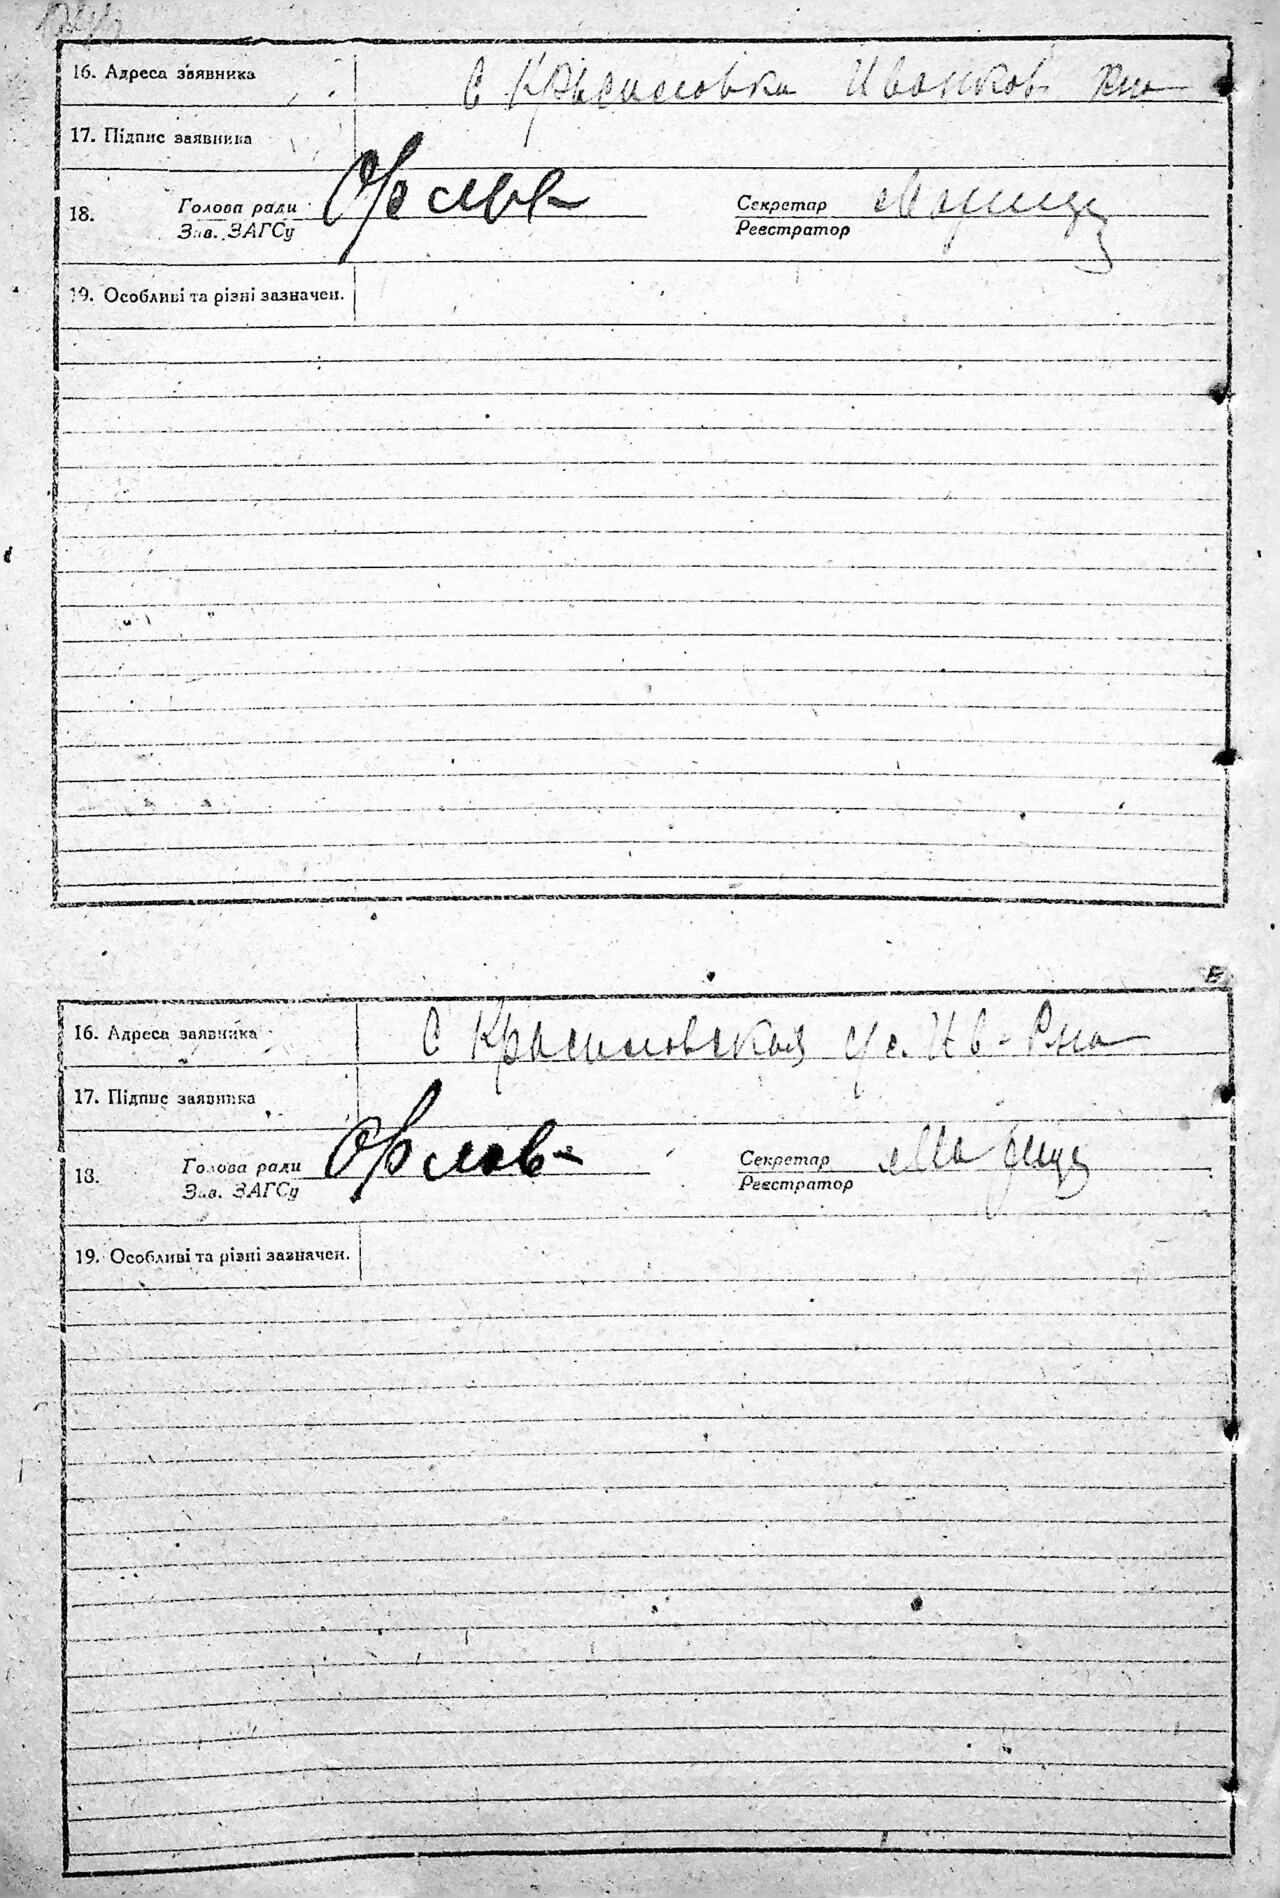 16. Адреса заявника С Красиловка Иванков Р-на
17. Підпис заявника
18. Голова ради Орлов Секретар
Зав. ЗАГСу Реєстратор
19. Особливі та різні зазначен.
16. Адреса заявника С Красиловская с/с. Ив-Р-на
17. Підпис заявника
18. Голова ради Орлов Секретар
Зав. ЗАГСу Реєстратор
19. Особливі та різні зазначен.